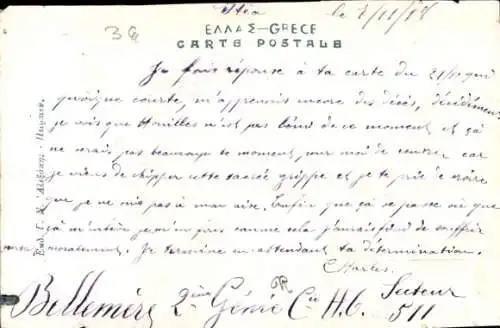 Itéa le 7/11/18
3 G
ΕΛΛΑΣ–GRECE
CARTE POSTALE
Je fais réponse à ta carte du 21/10 qui
quoique courte, m'apprenis encore des décès, décidément
je vois que Houilles n'est pas bond de ce moment et çà
ne serais pas beaucoup le moment pour moi de rentrer car
je viens de chipper cette sacrée grippe et je te prie de croire
que je ne suis pas à mon aise. Enfin que çà se passe ou que
çà m'entère je m'en fous comme cela j'aurais fini de souffrir
moralement. Je termine en attendant ta détermination.
Charles.
Bellemère 2ème Génie Cie H.C. Secteur
511
Εκδ. Γ. Ν. Αλεξάκης - Πειραιεύς